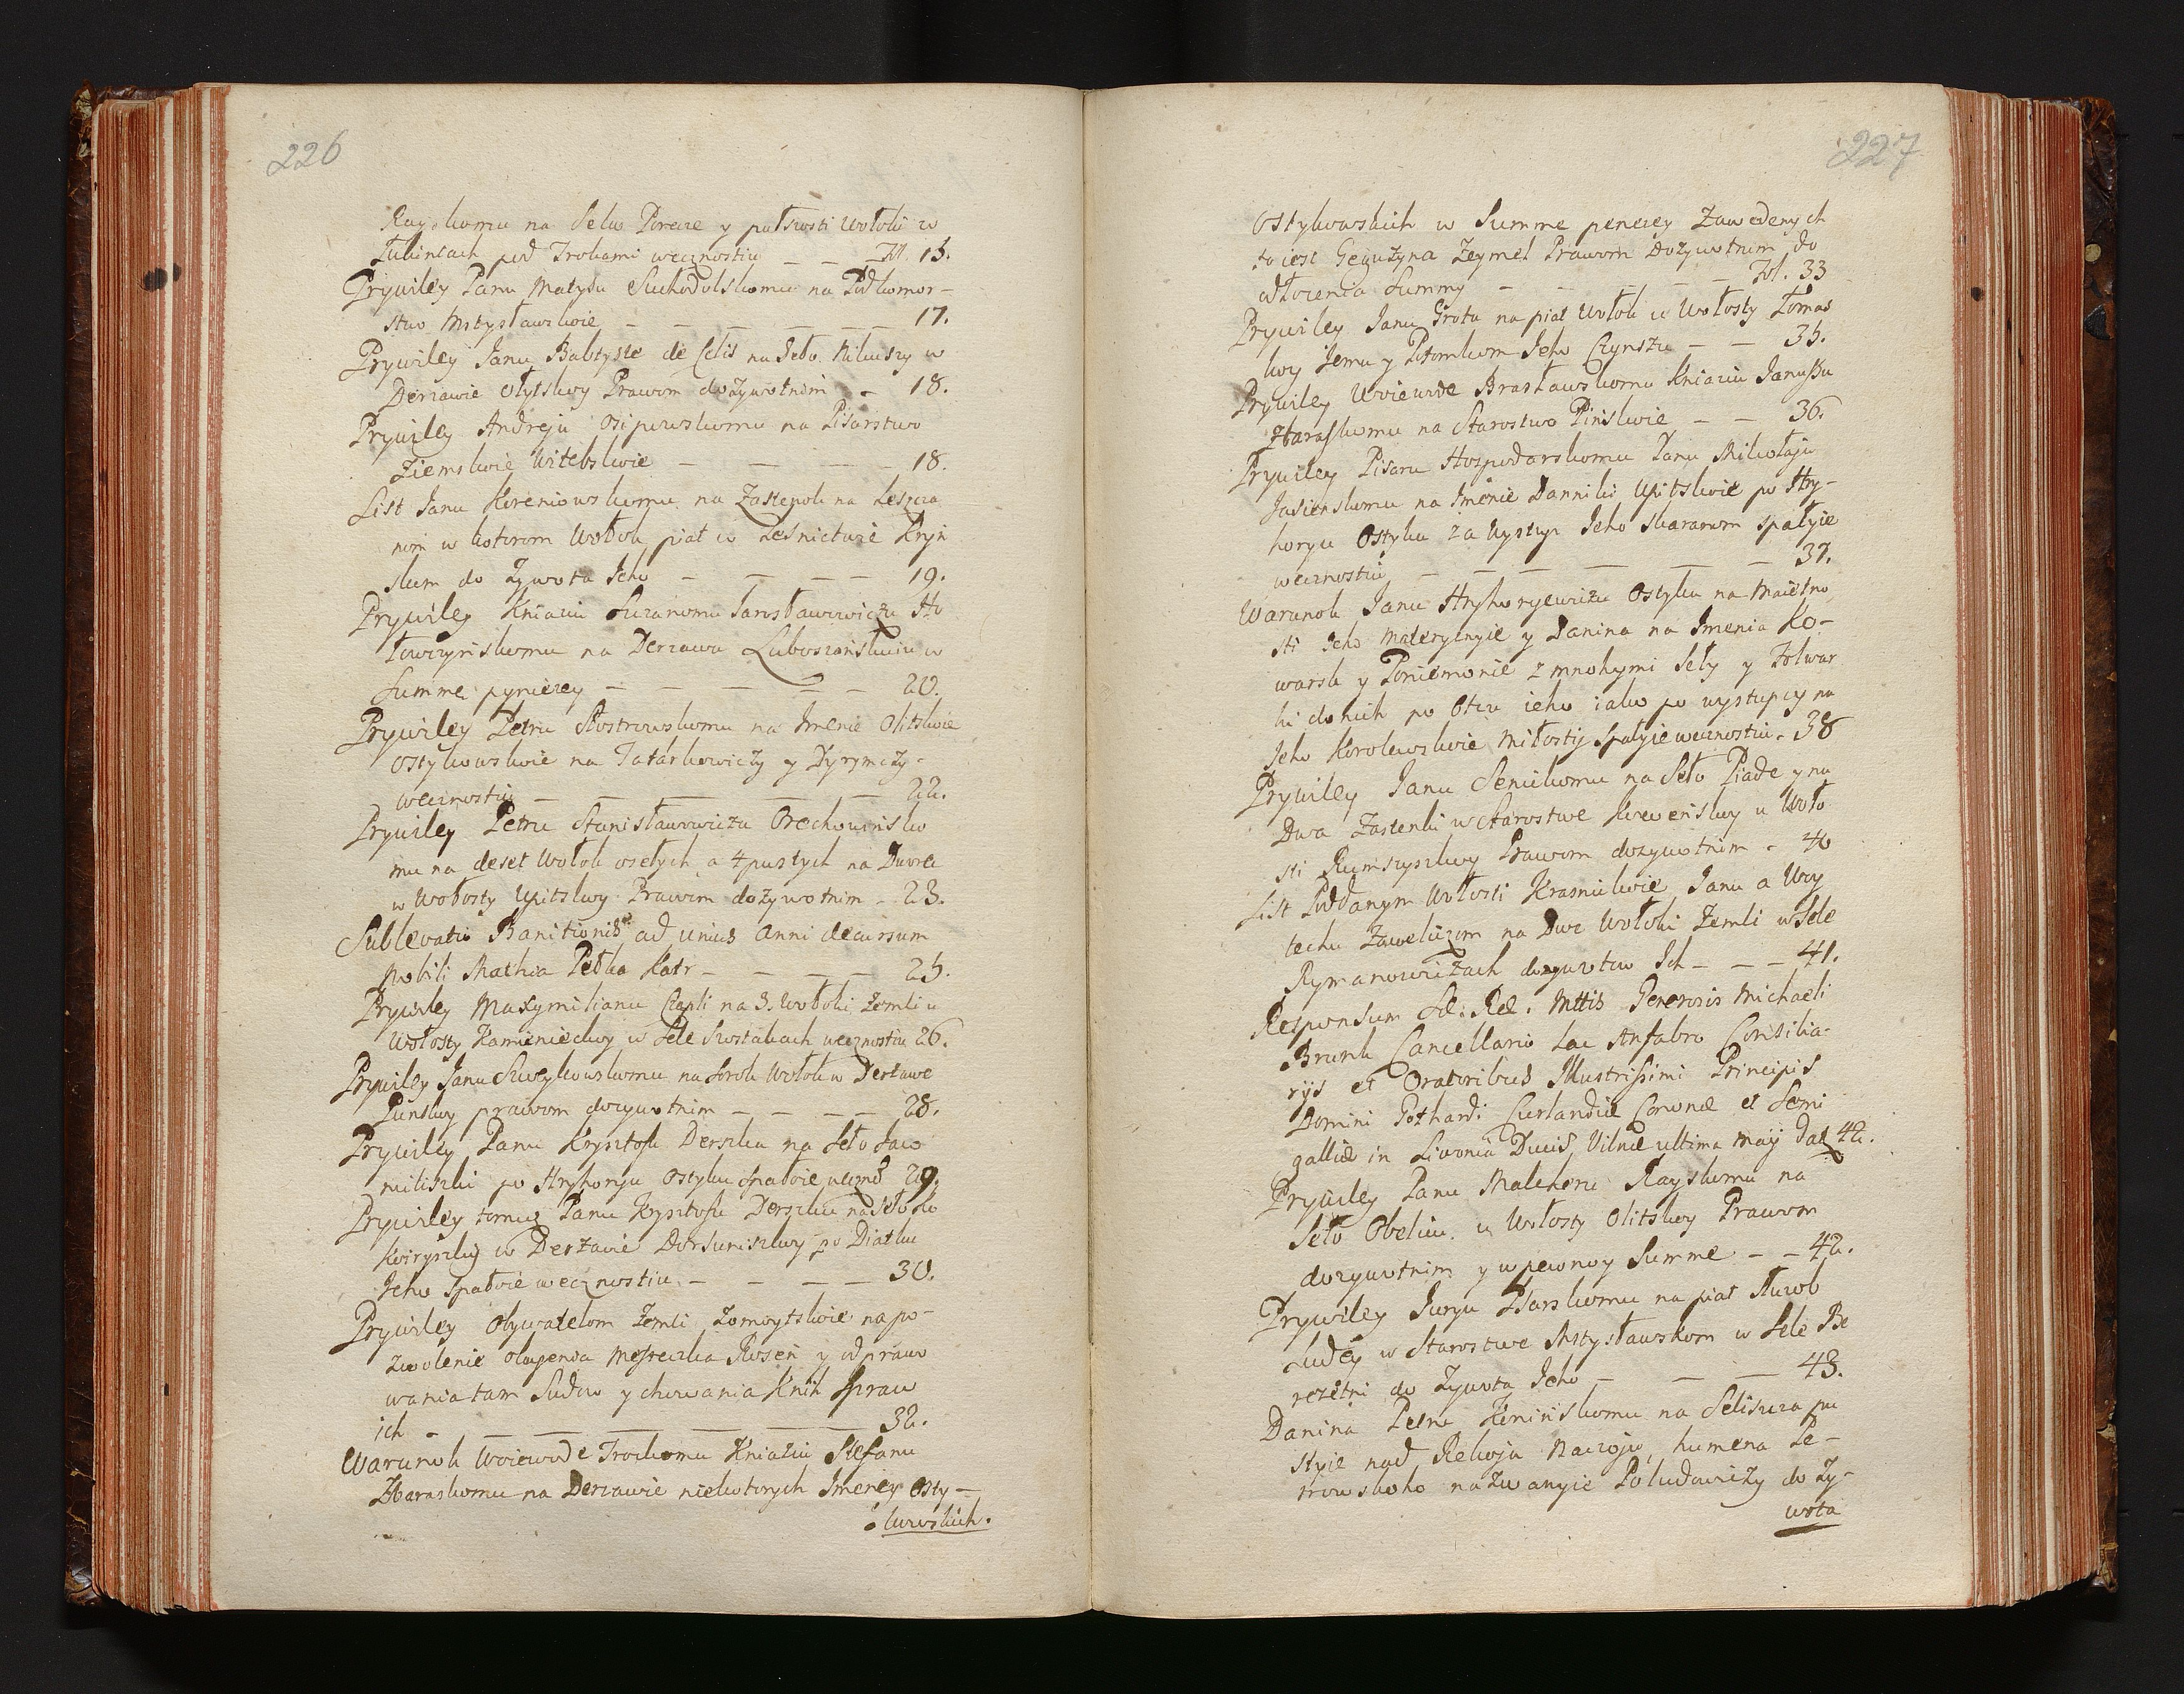 226
Rayskomu na Selo Porecze y pułszosti Wołoki w
Łubintach pod Trokami wecznostiu — — Fol. 15.
Prywiley Panu Matysu Suchodolskomu na Podkomor-
stwo Mstysławskoie — — — — — — 17.
Prywiley Janu Babtyste de Celis na Seło Nikuszy w
Derzawie Olytskoy Prawom dożywotnim — 18.
Prywiley Andreju Osipowskomu na Pisarstwo
Ziemskoie Witebskoie — — — — 18.
List Janu Koreniowskomu na Zastenok na Lesnicz
nom w kotorom Wołok piat w Leśnictwie Kryn
skum do Żywota Jeho — — — — 19.
Prywiley Kniaziu Łuzanomu Jarosławowiczu Ho
łowczynskomu na Derzawu Luboszanskuiu w
Summe pyniezey — — — — — 20.
Prywiley Petru Skostrowskomu na Jmenie Olitskoie
Ostykowskoie na Tatarkowiczy y Dyrmczy
wecznostiu — — — — — — 22.
Prywiley Petru Stanisławowiczu Orechowinsko
mu na deset Wołok osełych a 4 pustych na Dworec
w Wołosty Upitskoy Prawom dożywotnim — 23.
Sublevatio Banitionis ad unius anni decursum
Nobili Mathia Petka Katr — — — — 25.
Prywiley Maxymilianu Czapli na 3. Wołoki Zemli u
Wołosty Kamienieckoy w Sele Szostakach wecznostiu 26.
Prywiley Janu Szweykowskomu na sorok Wołok w Derżawe
Punskoy prawom dozywotnim — — — — 28.
Prywiley Panu Krysztofu Derszku na Seło Law
niliszki po Hryhoryu Ostyku spałoie weczno 29.
Prywiley tomuz Panu Krysztofu Derszku na Seło Ło
Kwiryszkij w Derżawie Dorsuniszkoy po Diatku
Jeho spałoie wecznostiu — — — — 30.
Prywiley Obywatelom Zemli Żomoytskoie na po-
zwolenie okupenia Mesteczka Rosień y odprawo
wania tam Sudow y chowania Knih Spraw
ich — — — — — — — 32.
Warunok Woiewode Trockomu Kniaziu Stefanu
Zbaraskomu na Derzawie niekotorych Jmeney Osty-
kowskich.
227
Ostykowskich w Summe penezey Zawedenych
to iest Geguzyna Zeymel Prawom Dożywotnim do
odłożenia Summy — — — — — Fol. 33
Prywiley Janu Grotu na piat Wołok w Wołosty Łomaz
koy Jemu y Potomkom Jeho Czynszu — — 35.
Prywiley Woiewode Brasławskomu Kniaziu Janussu
Zbaraskomu na Starostwo Pinskoie — — 36.
Prywiley Pisaru Hospodarskomu Janu Mikołaju
Jasienskomu na Jmenie Danniki Upitskoie po Hry-
horyu Ostyku za wystup Jeho skaranom spałyie
wecznostiu — — — — — — 37.
Warunok Janu Hryhoryewiczu Ostyku na Maietno
sti Jeho Materynyie y Danina na Jmenia Ko-
warsk y Poniemonie z mnohymi Seły y Folwar
ki do nich po Otcu ieho iako po wystupcy na
Jeho Korolewskoie Miłosty spałyie wecznostiu — 38
Prywiley Janu Senickomu na Seło Piade y na
Dwa Zastenki w Starostwe Kowenskoy u Woło
sti Rumszyszkoy Prawom dozywotnim — 40
List Poddanym Wołosti Krasnickoie Janu a Woy
techu Zawelczom na Dwe Wołoki Zemli w Sele
Rymanowiczach dozywotno Jch — — — 41.
Responsum Sæ: Ræ: Mttis Generosis Michaeli
Brunk Cancellario Lac Anfabro Consilia-
rijs et Oratoribus Illustrissimi Principis
Domini Gothardi Curlandiæ Coronæ et Semi
galliæ in Livonia Ducis, Vilnæ ultima Maij dat 42.
Prywiley Panu Malcheru Rayskomu na
Seło Obeliu u Wołosty Olitskoy Prawom
dozywotnim y w pewnoy Summe — — 42.
Prywiley Juryu Zsarskomu na piat służob
Ludey w Starostwe Mstysławskom w Sele Be
rezetni do Żywota Jeho — — — 43.
Danina Petru Kminskomu na Selisucza pu
styie nad Rekoju Naczoju, humena Pe-
trowskoho nazwanyie Poludowiczy do Ży-
wota